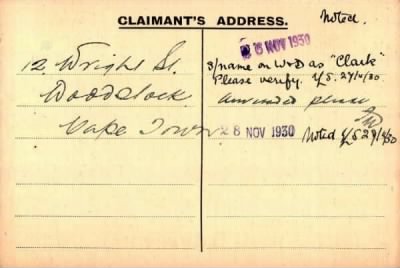 CLAIMANT'S ADDRESS.
Noted.
12. Wright St.
Woodstock.
Cape Town
NOV 1930
S/name on W&D as "Clark"
Please verify. 27/11/30.
Amended please
28 NOV 1930
Noted 29/11/30